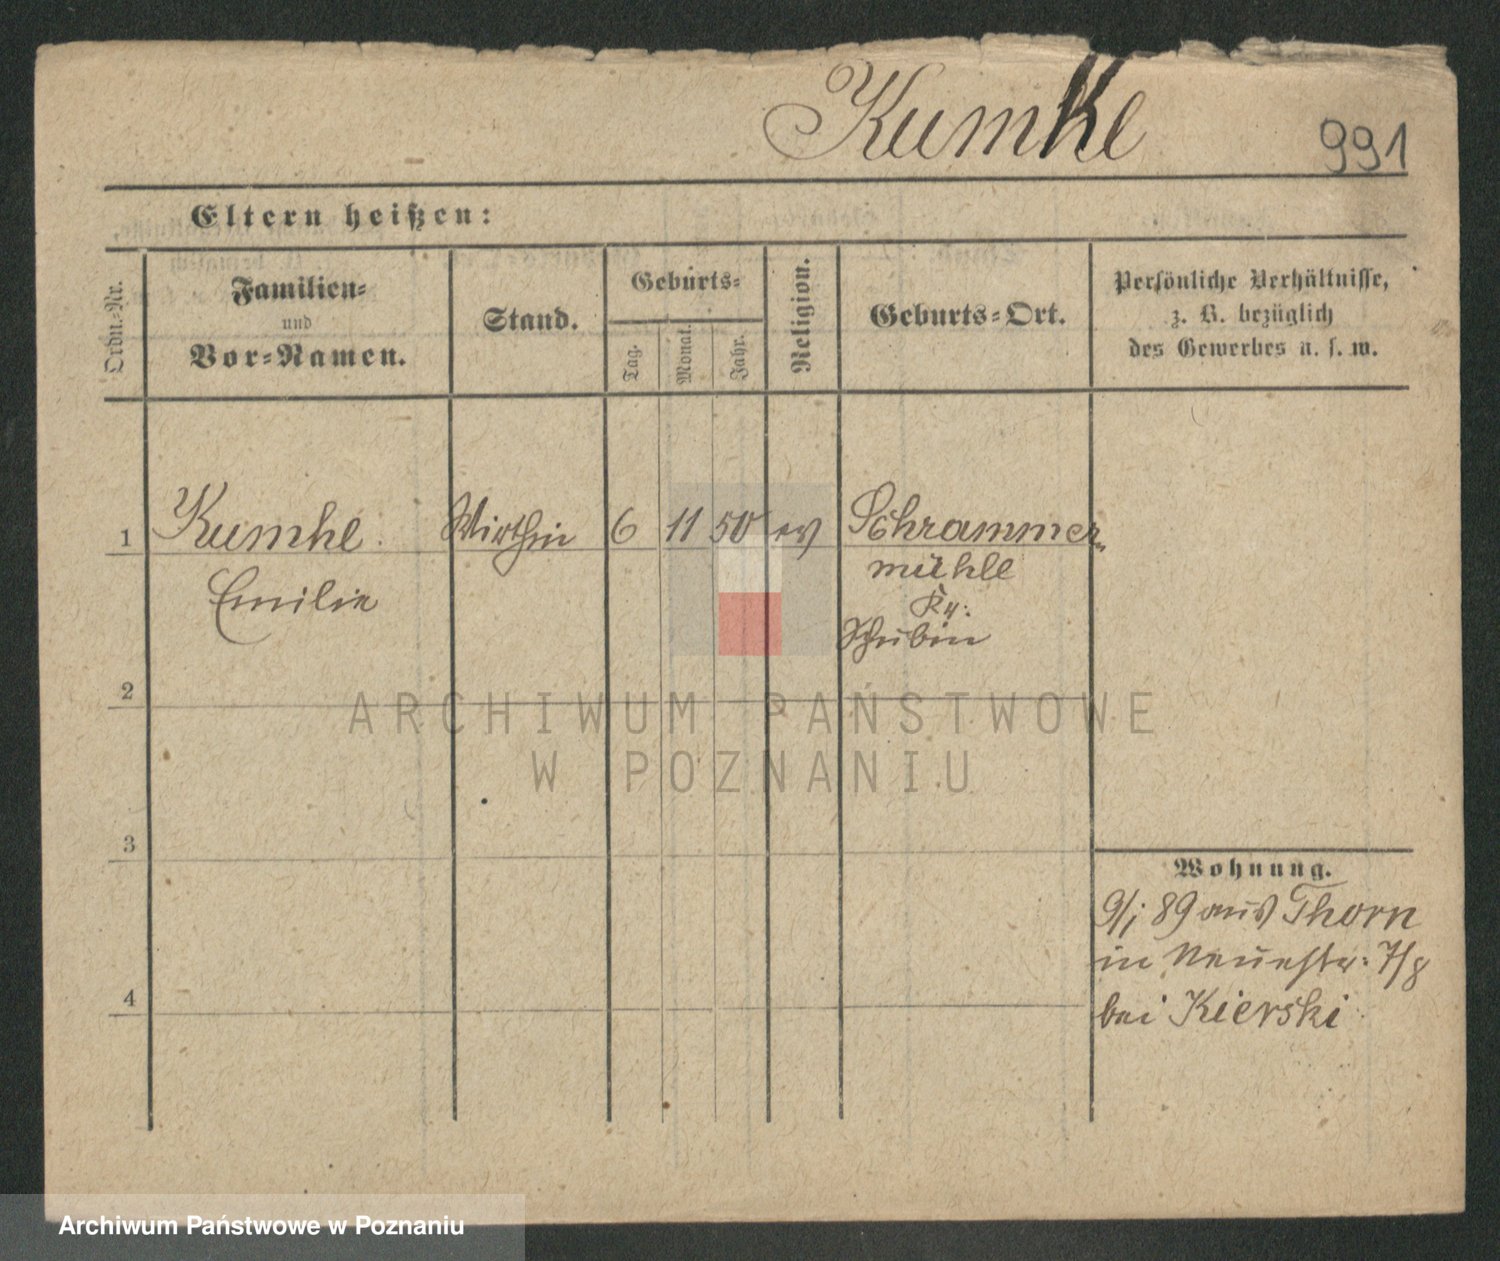 Kumke
991
Eltern heißen:
Ordn.-Nr.
Familien-
und
Vor-Namen.
Stand.
Geburts-
Tag.
Monat.
Jahr.
Religion.
Geburts-Ort.
Persönliche Verhältnisse,
z. B. bezüglich
des Gewerbes u. s. w.
1 Kumke Wirthin 6 11 50 ev Schrammer-
Emilie mühle
Kr:
Schubin
2
3
4
Wohnung.
9/1 89 aus Thorn
in Neuestr: 7/8
bei Kierski
ARCHIWUM PAŃSTWOWE
W POZNANIU
Archiwum Państwowe w Poznaniu